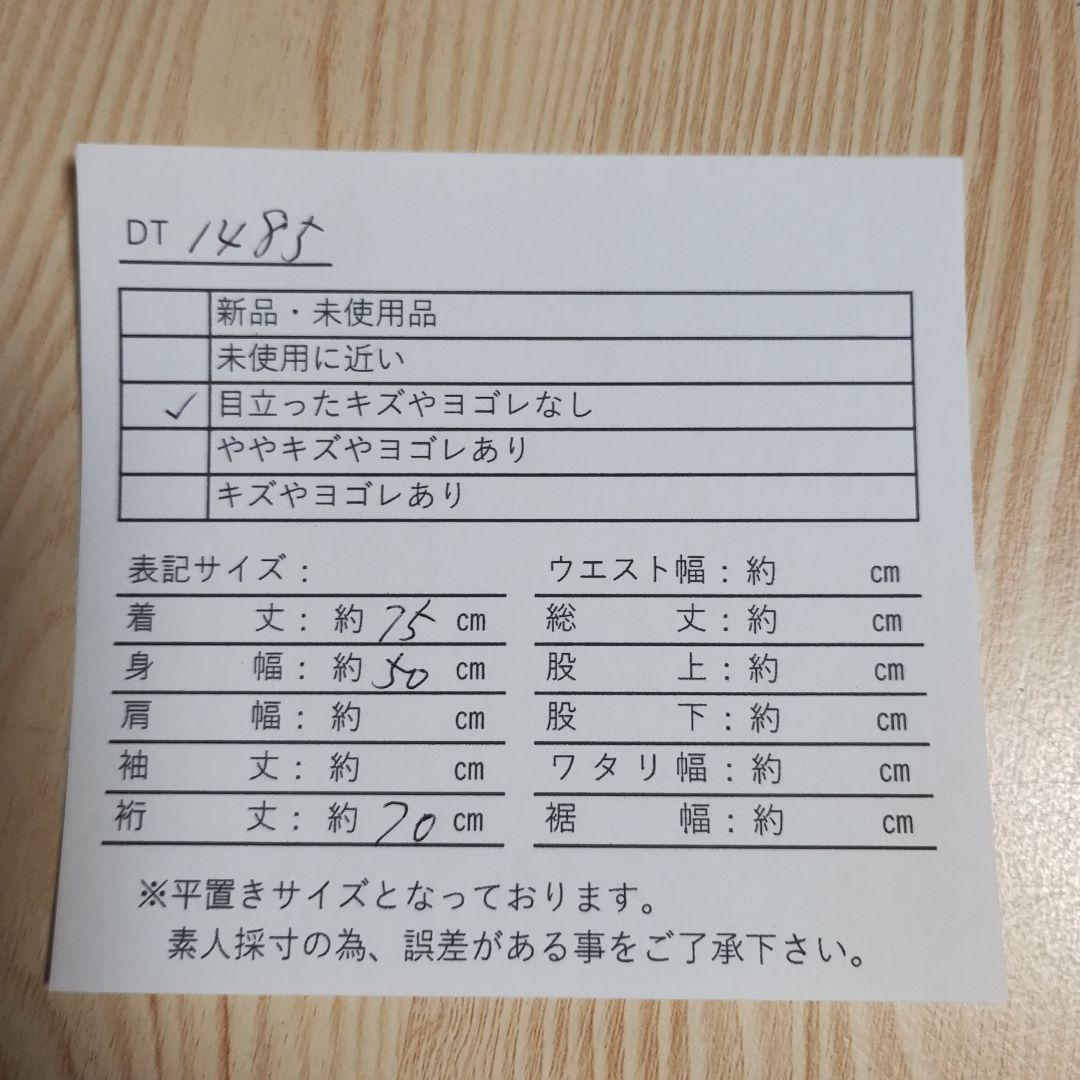 DT 1485
新品・未使用品
未使用に近い
✓ 目立ったキズやヨゴレなし
ややキズやヨゴレあり
キズやヨゴレあり
表記サイズ:
着 丈: 約 75 cm
身 幅: 約 50 cm
肩 幅: 約 cm
袖 丈: 約 cm
裄 丈: 約 70 cm
ウエスト幅: 約 cm
総 丈: 約 cm
股 上: 約 cm
股 下: 約 cm
ワタリ幅: 約 cm
裾 幅: 約 cm
※平置きサイズとなっております。
素人採寸の為、誤差がある事をご了承下さい。